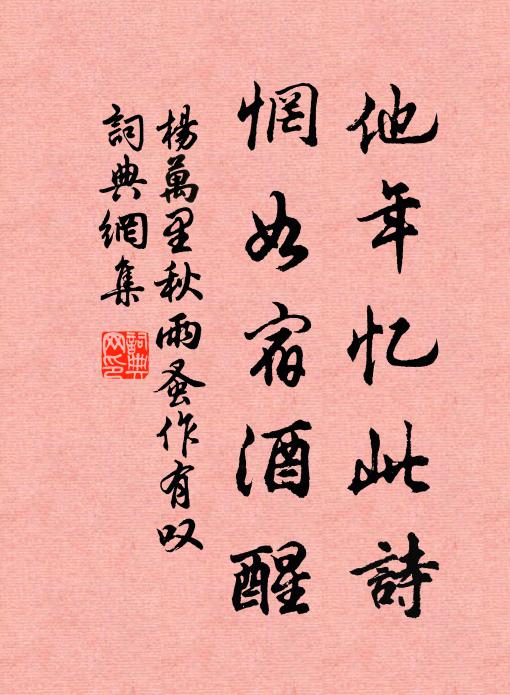 他年忆此詩
惘如宿酒醒
楊萬里秋雨蚤作有叹
詞典網集
詞典网印